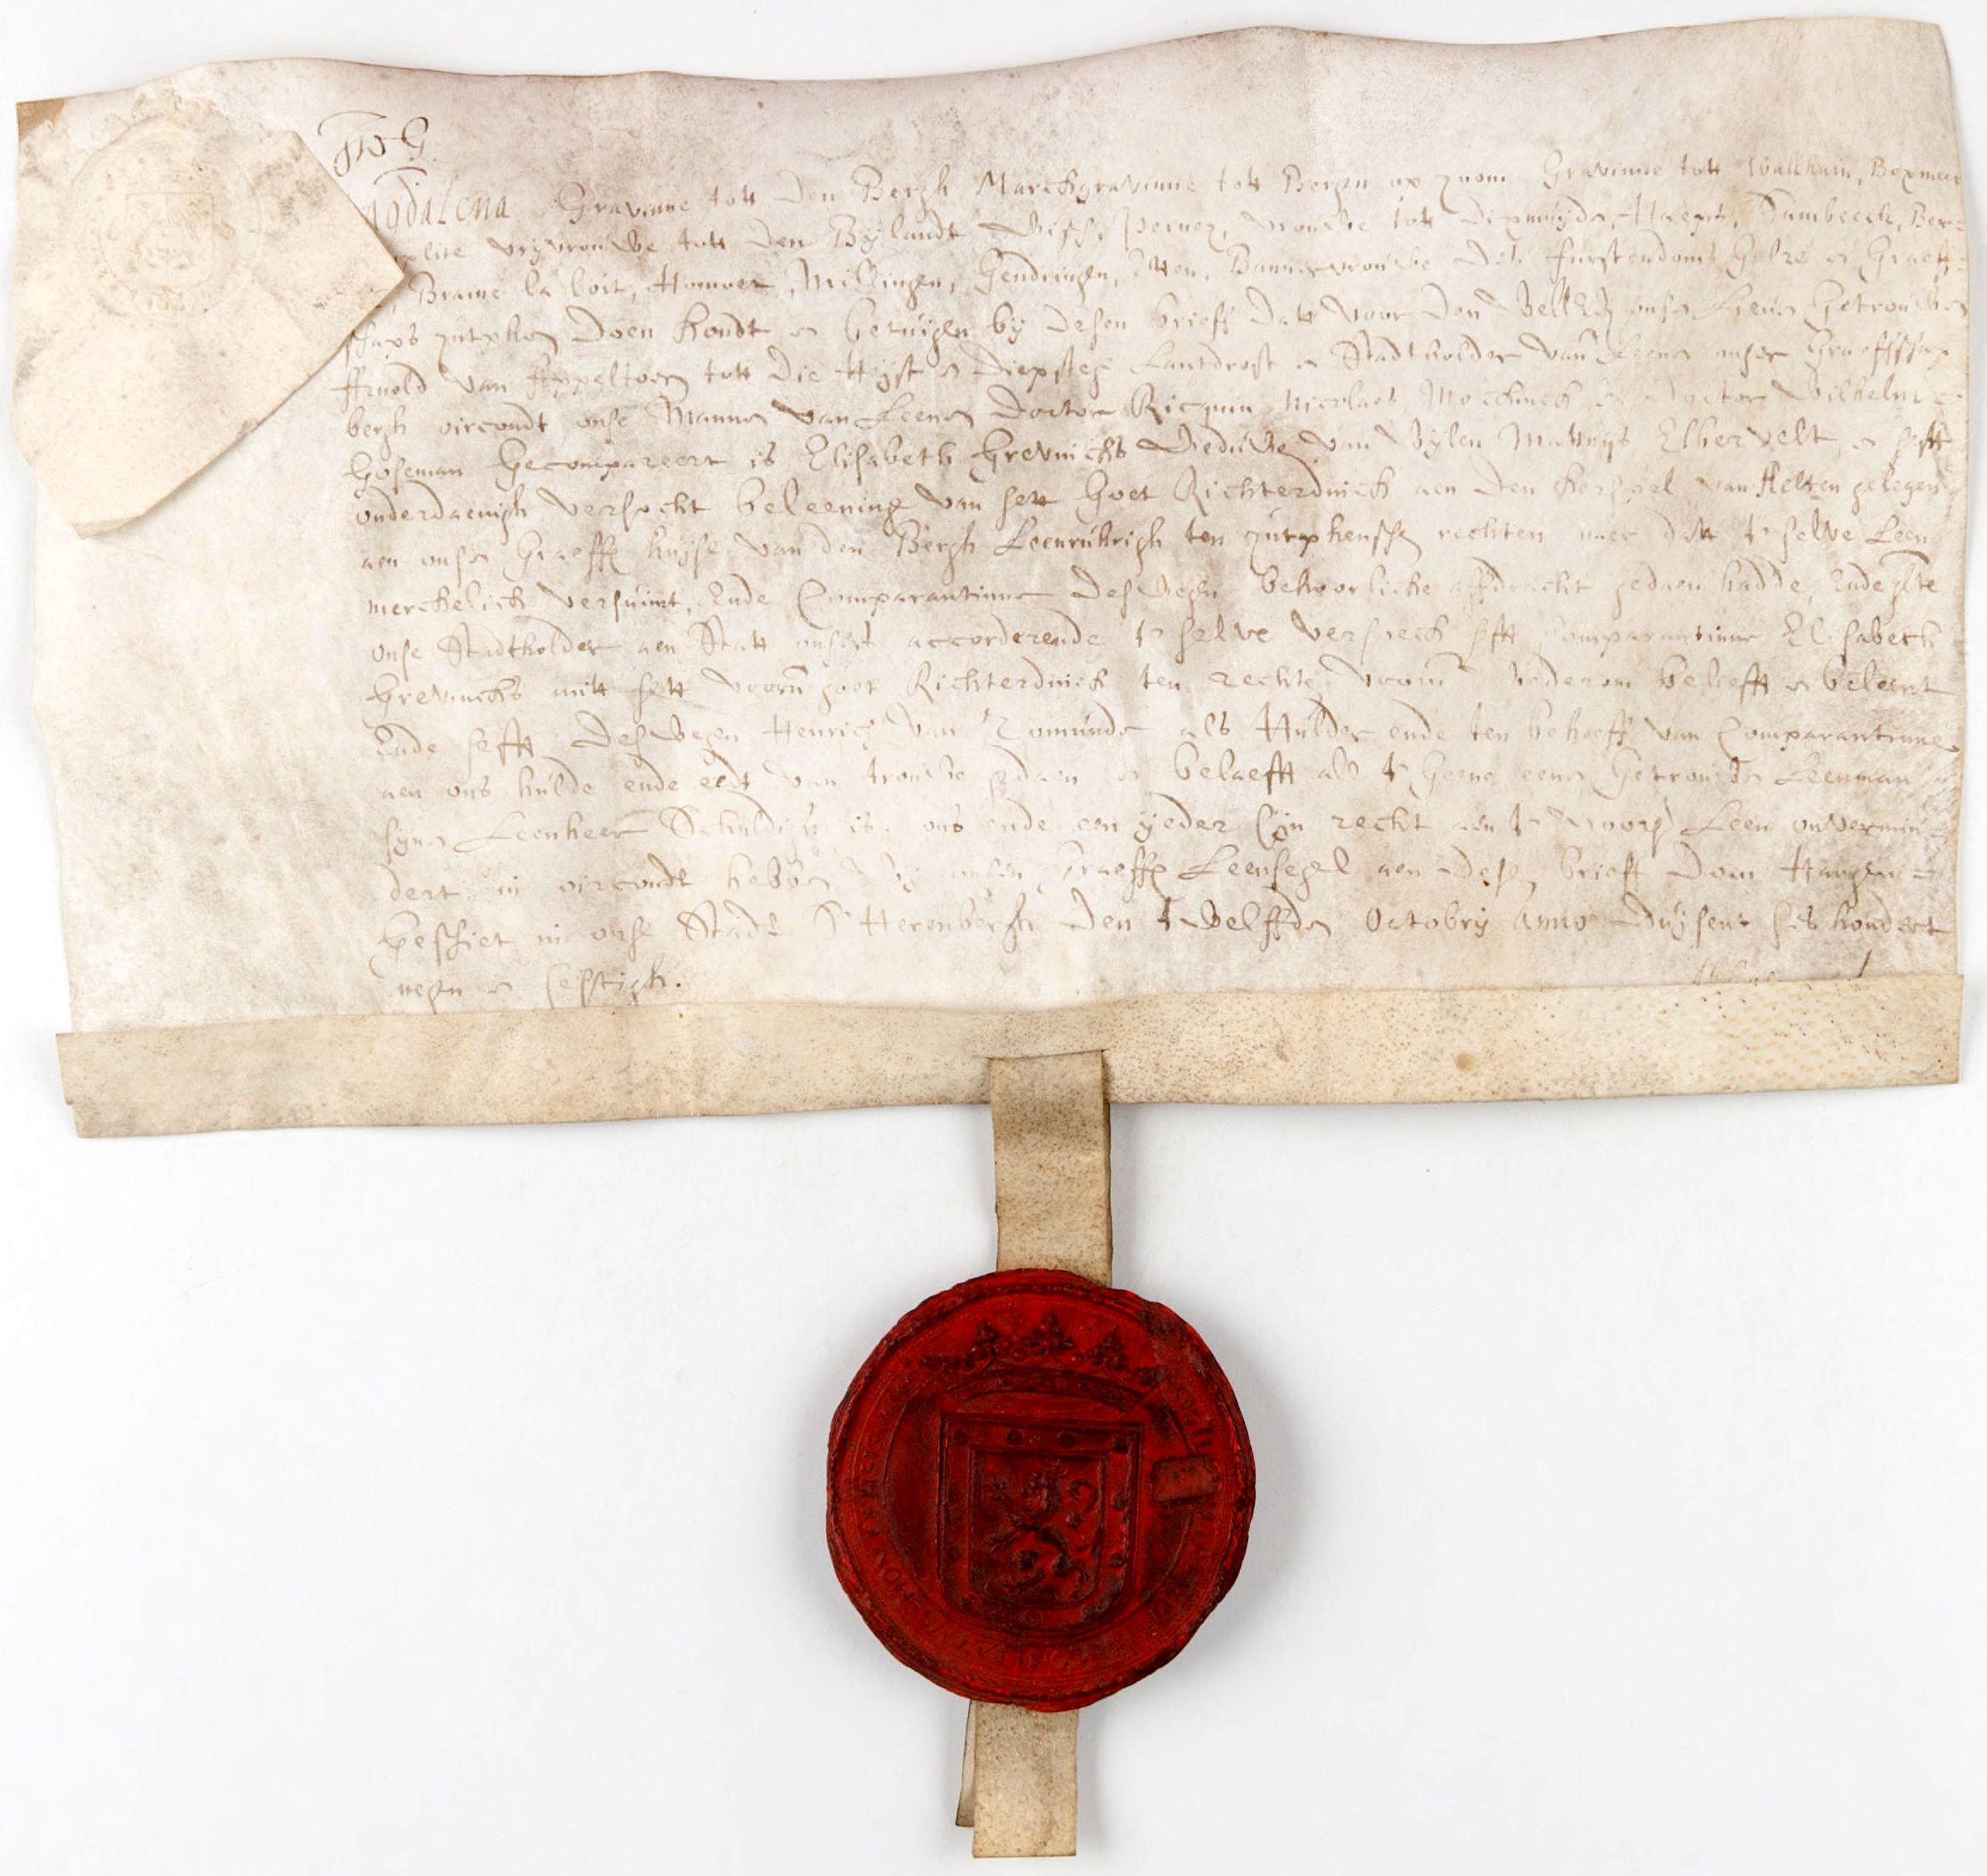 Wy
agdalena Gravinne tott den Bergh Marckgravinne tott Bergen op zoom Gravinne tott Walhain, Boxmeer
vryvrouwe tott den Bylandt Wisch, Perwez, vrouwe tott Dixmuyde, Haeps, Sambeeck, Ber-
Braine la loit, Homoet, Millingen, Gendringen, Etten, Bannervrouwe des furstendoms Gelre en Graeff-
schaps zutphen Doen kondt en betuigen by desen brieff datt voor den Well Ed onsen Lieven Getrouwen
Arnold van Appeltoorn tott die Heyst en Diepsteg Lantdrost en Stadtholder van Leenen onser Graeffschap
bergh oircondt onse Mannen van Leenen Doctor Ricquin Nicolaes en Doctor Wilhelm
Goseman Gecompareert is Elisabeth Grevincks Weduwe van Wylen Matthys Elbervelt en hefft
onderdaenigh versocht beleening van hett Goet Richterdinck aen den kerspel van Aelten gelegen
aen onsen Graeff huyse van den Bergh Leenruhrigh ten zutphenschen rechten maer datt t selve Leen
merckelick versuimt, Ende Comparantinne deswegen behoorlicke affdracht gedaen hadde, Ende
onse Stadtholder aen Statt onsert accorderende t selve versoeck hefft Comparantinne Elisabeth
Grevincks mitt hett voorn goet Richterdinck ten rechte voorn wederom beleefft en beleent
Ende hefft deswegen Henrich van als Hulder ende ten behoeff van Comparantinne
aen ons hulde ende eedt van trouwe gedaen en belaefft all t Geene eenen Getrouwen Leenman
synen Leenheer Schuldigh is. ons ende een yeder syn recht aen t voors Leen onvermin-
dert in oircondt hebben Wy onsen Graeffl Leensegel aen desen brieff doen Hangen
geschiet in onse Stadt S Herenbergh den twelffden Octobry Anno Duysent ses hondert
negen en sesstigh.